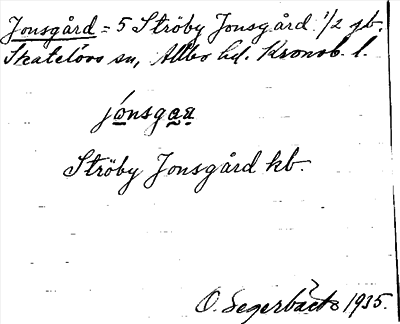 Jonsgård = 5 Ströby Jonsgård 1/2 gb.
Skatelövs sn, Allbo hd. Kronob. l.
jónsgaa
Ströby Jonsgård kb.
O. Segerbäck 1935.